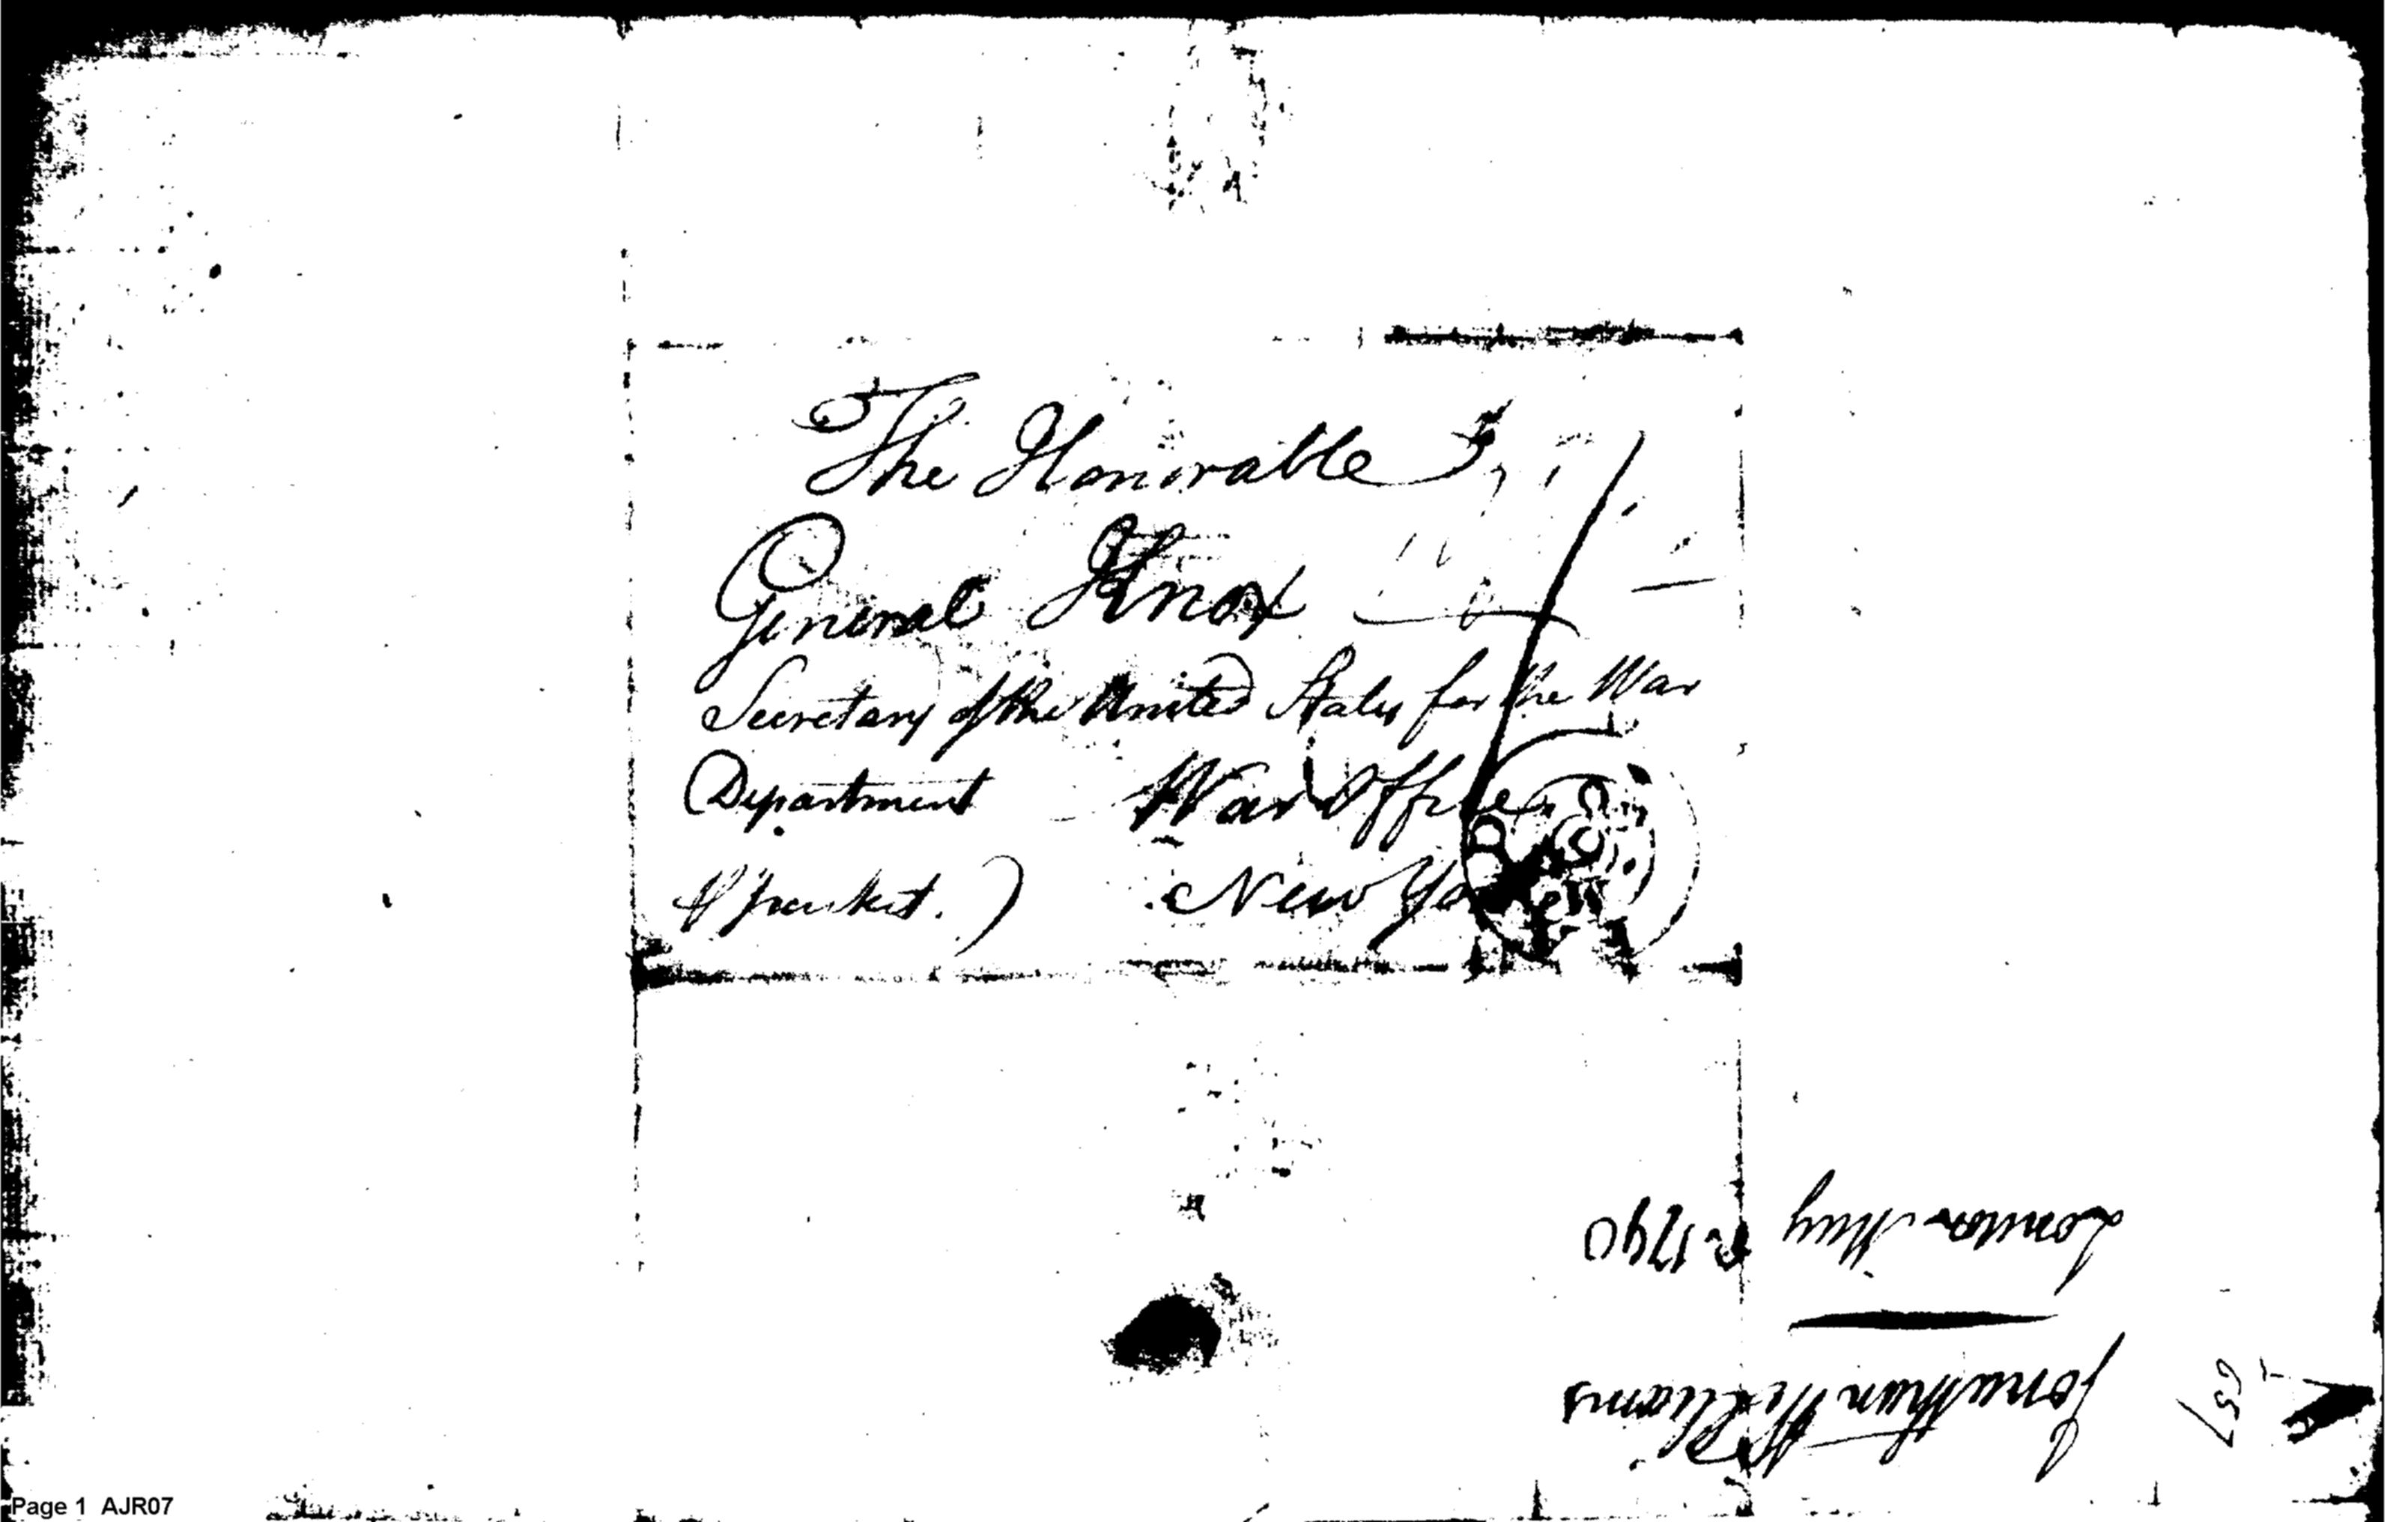 The Honorable
General Knox
Secretary of the United States for the War
Department War Office
P packet.) New York
Jonathan Williams
London May 1790
Page 1 AJR07